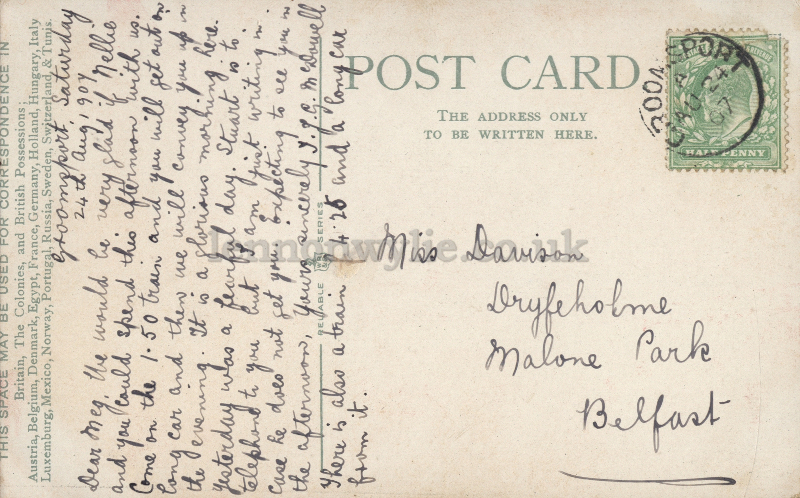 THIS SPACE MAY BE USED FOR CORRESPONDENCE IN
Britain, The Colonies, and British Possessions;
Austria, Belgium, Denmark, Egypt, France, Germany, Holland, Hungary, Italy
Luxemburg, Mexico, Norway, Portugal, Russia, Sweden, Switzerland, & Tunis.
Groomsport, Saturday
24th Aug, 1907
Dear Meg, We would be very glad if Nellie
and you could spend this afternoon with us.
Come on the 1.50 train and you will get out on
long car and then we will convey you up in
the evening. It is a glorious morning here.
Yesterday was a fearful day. Stuart is to
telephone to you but I am just writing in
case he does not get you. Expecting to see you in
the afternoon, Yours sincerely McDowell
There is also a train 4.25 and a long car
from it.
RELIABLE SERIES
POST CARD
THE ADDRESS ONLY
TO BE WRITTEN HERE.
GROOMSPORT
A
AU 24
07
HALFPENNY
Miss Davison
Dryfeholme
Malone Park
Belfast
lennonwylie.co.uk